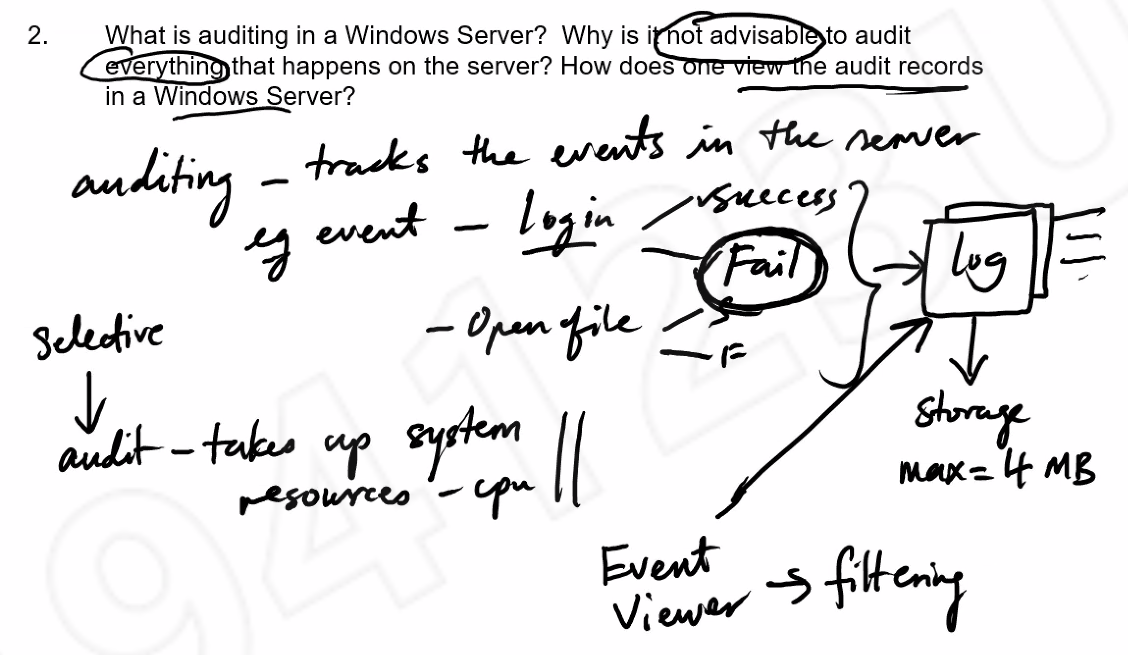 2. What is auditing in a Windows Server? Why is it not advisable to audit
everything that happens on the server? How does one view the audit records
in a Windows Server?
auditing – tracks the events in the server
eg event – Login success
Fail
Log
– Open file S
F
selective
audit – takes up system
resources – cpu
storage
max = 4 MB
Event
Viewer → filtering